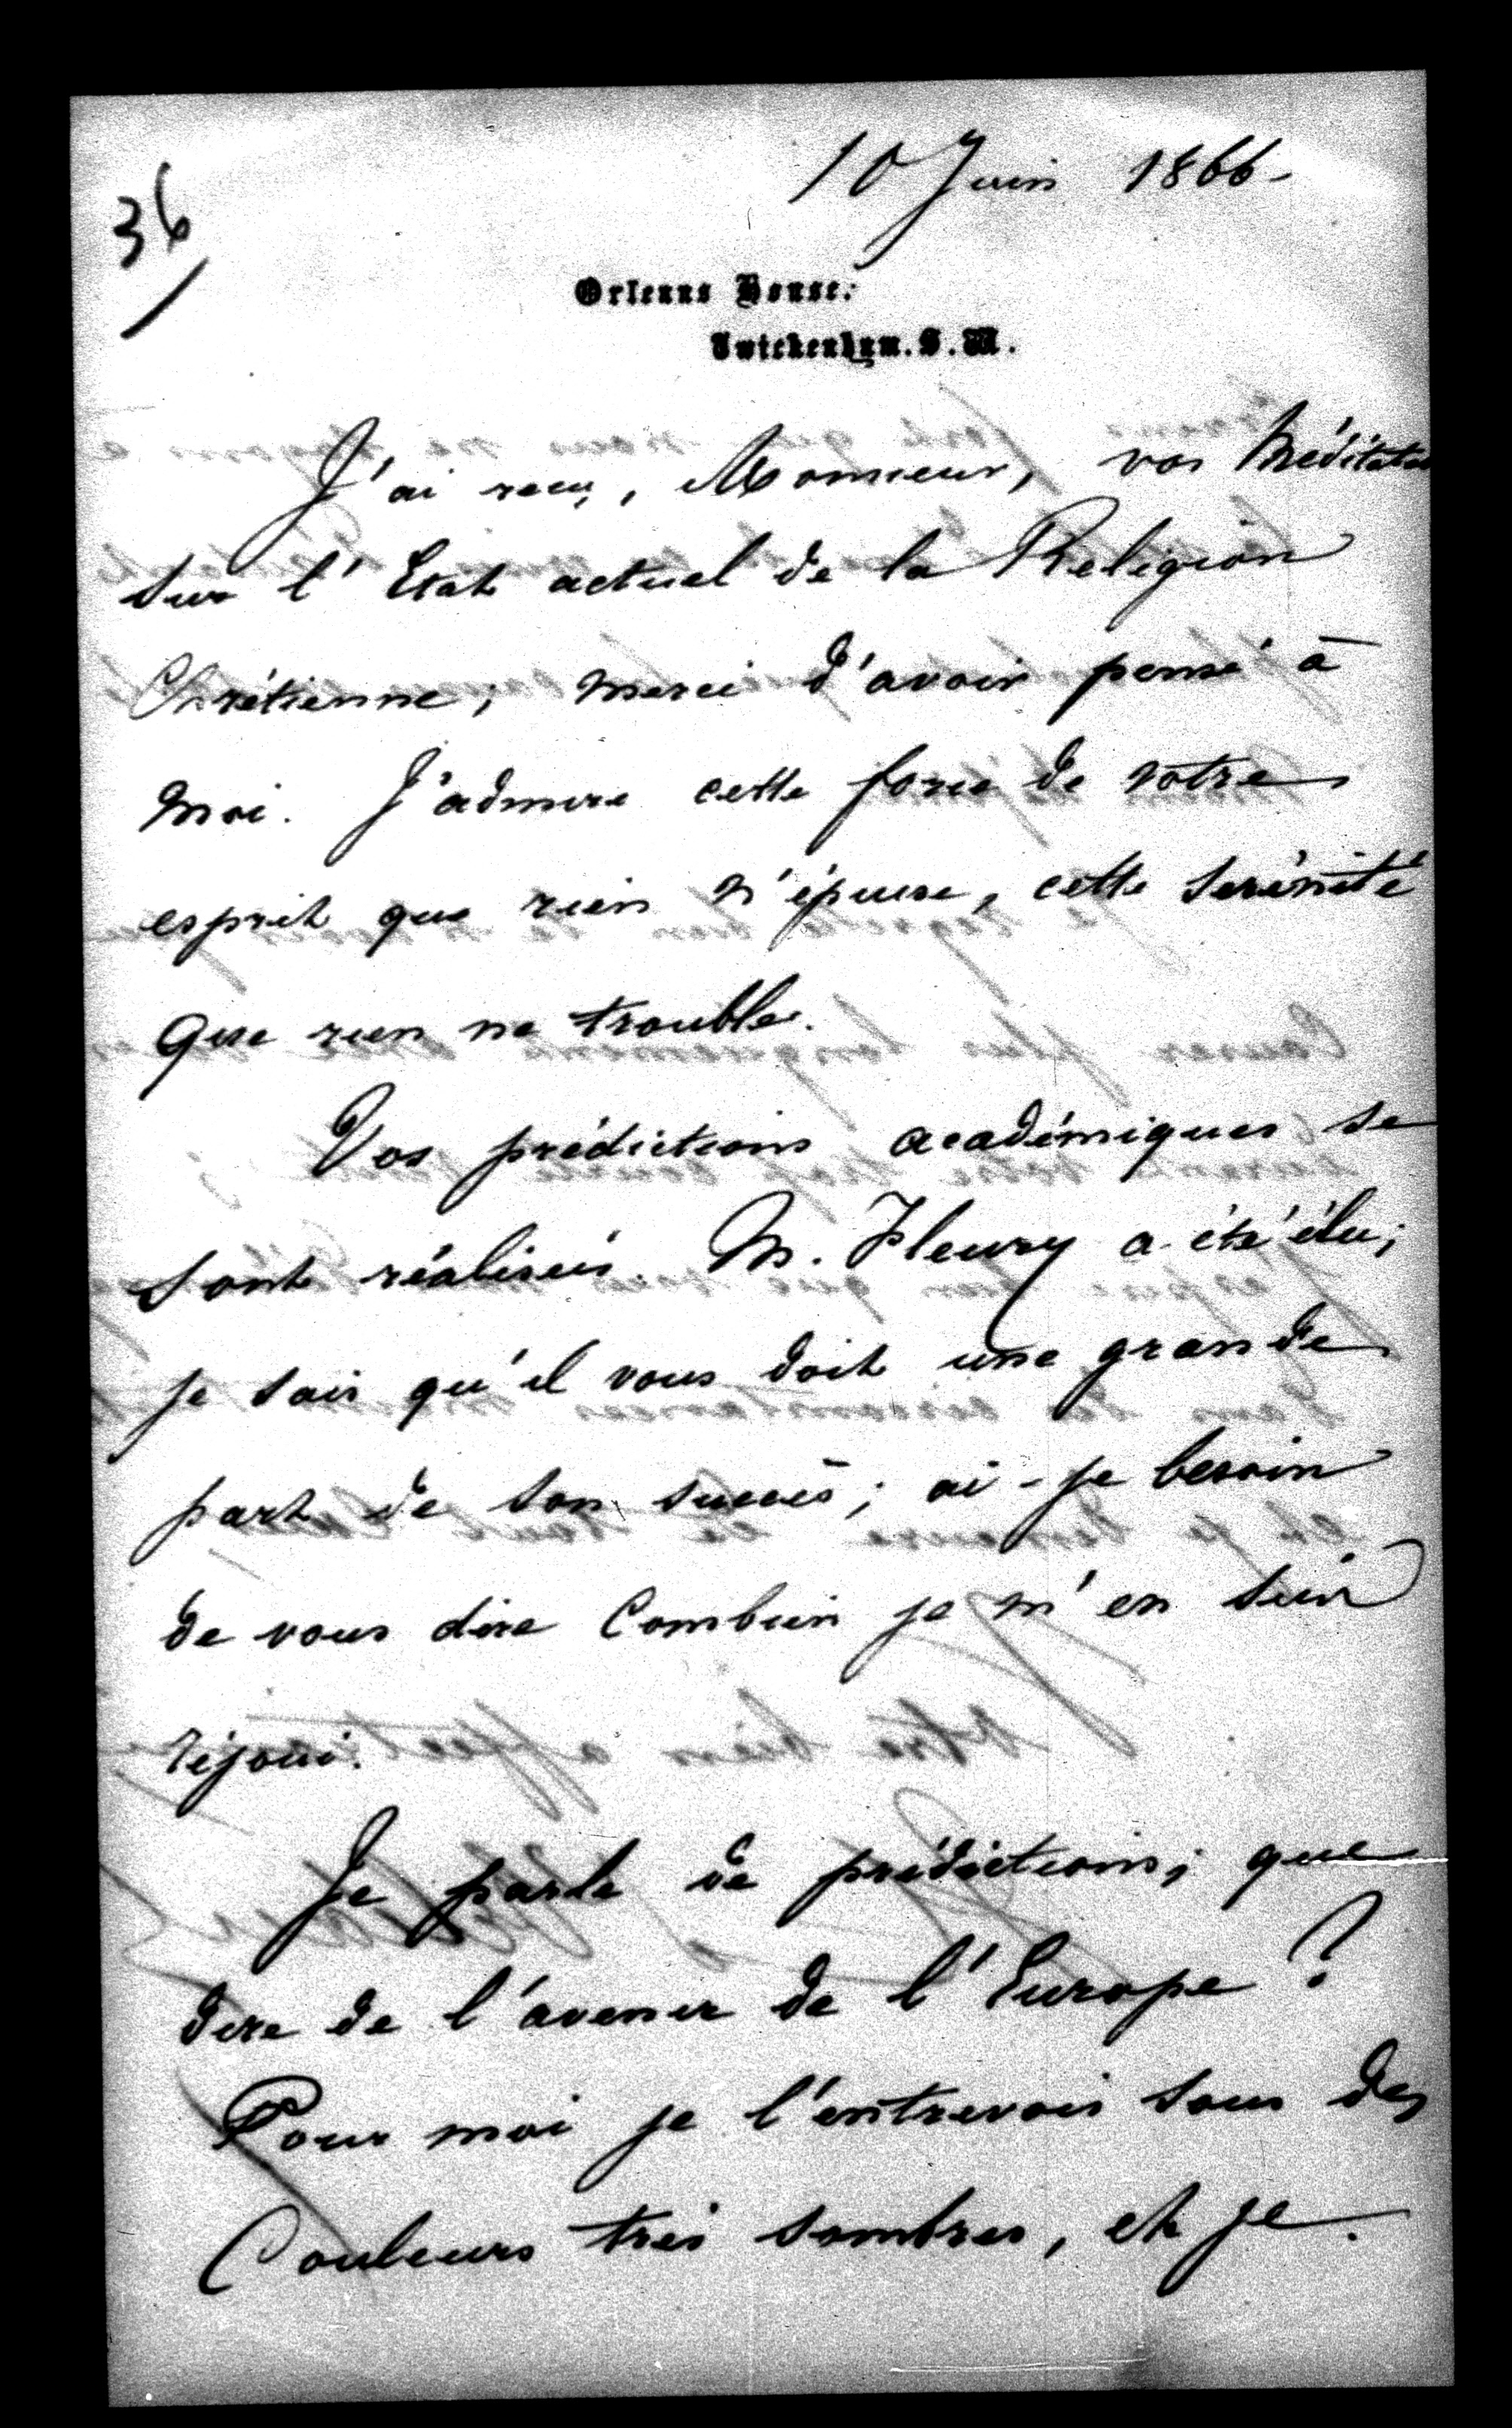 10 Juin 1866-
36
Orleans House.
Twickenham. S. W.
J'ai reçu, Monsieur, vos Méditations
sur l'Etat actuel de la Religion
Chrétienne; merci d'avoir pensé à
moi. J'admire cette force de votre
esprit que rien n'épuise, cette sérénité
que rien ne trouble.
Vos prédictions académiques se
sont réalisées. M. Fleury a été élu;
je sais qu'il vous doit une grande
part de son succès; ai-je besoin
de vous dire combien je m'en suis
réjoui.
Je parle de prédictions; que
dire de l'avenir de l'Europe ?
Pour moi je l'entrevois sous des
Couleurs très sombres, et je